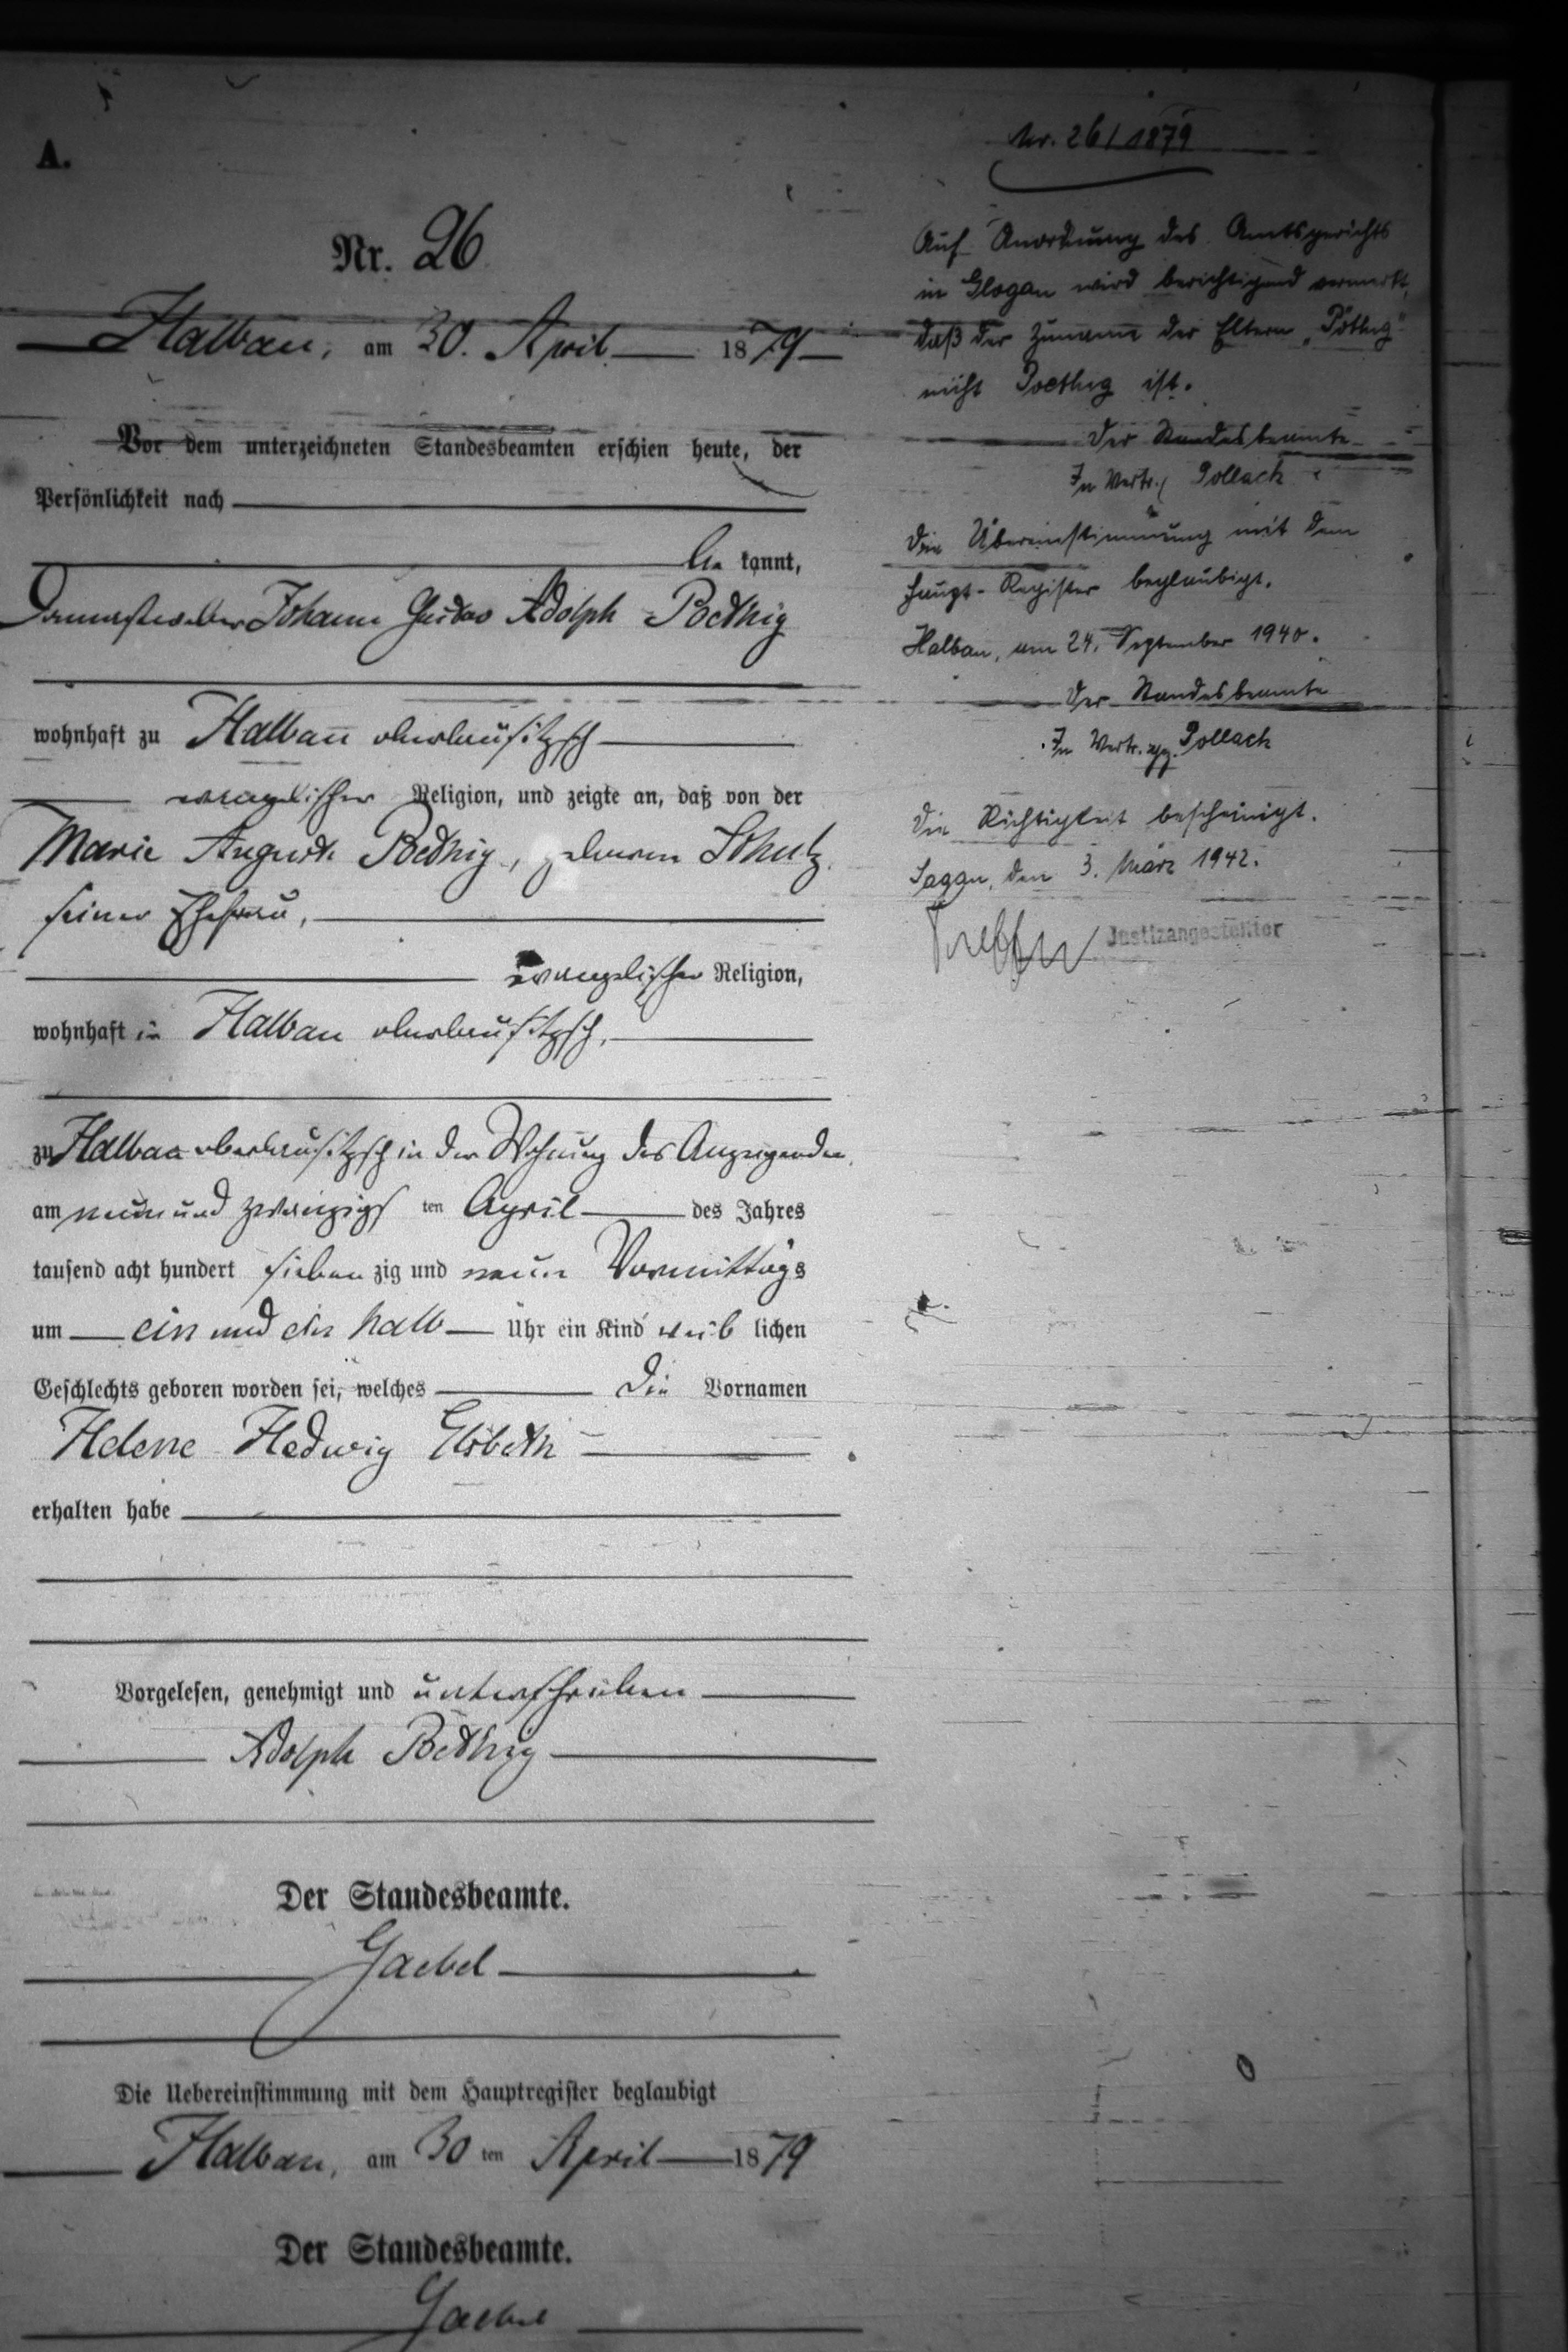 A.
Nr. 26
Halbau, am 30. April 1879
Vor dem unterzeichneten Standesbeamten erschien heute, der
Persönlichkeit nach
be kannt,
Johann Gustav Adolph Poethig
wohnhaft zu Halbau oberlausitzsch
evangelischer Religion, und zeigte an, daß von der
Marie Auguste Poethig, geborene Schulz
seiner Ehefrau,
evangelischer Religion,
wohnhaft in Halbau oberlausitzsch,
zu Halbau oberlausitzsch in der Wohnung des Anzeigenden,
am neun und zwanzigs ten April des Jahres
tausend acht hundert sieben zig und neun Vormittags
um ein und ein halb Uhr ein Kind weib lichen
Geschlechts geboren worden sei, welches die Vornamen
Helene Hedwig Elsbeth
erhalten habe
Vorgelesen, genehmigt und unterschrieben
Adolph Poethig
Der Standesbeamte.
Gaebel
Die Uebereinstimmung mit dem Hauptregister beglaubigt
Halbau, am 30 ten April 1879
Der Standesbeamte.
Gaebel
Nr. 26/1879
Auf Anordnung des Amtsgerichts
in Glogau wird berichtigend vermerkt,
daß der Zuname der Eltern „Pöthig"
nicht Poethig ist.
Der Standesbeamte
In Vertr. Pollack
Die Übereinstimmung mit dem
Haupt-Register beglaubigt.
Halbau, am 24. September 1940.
Der Standesbeamte
In Vertr. gez. Pollack
Die Richtigkeit bescheinigt.
Sagan, den 3. März 1942.
Justizangestellter